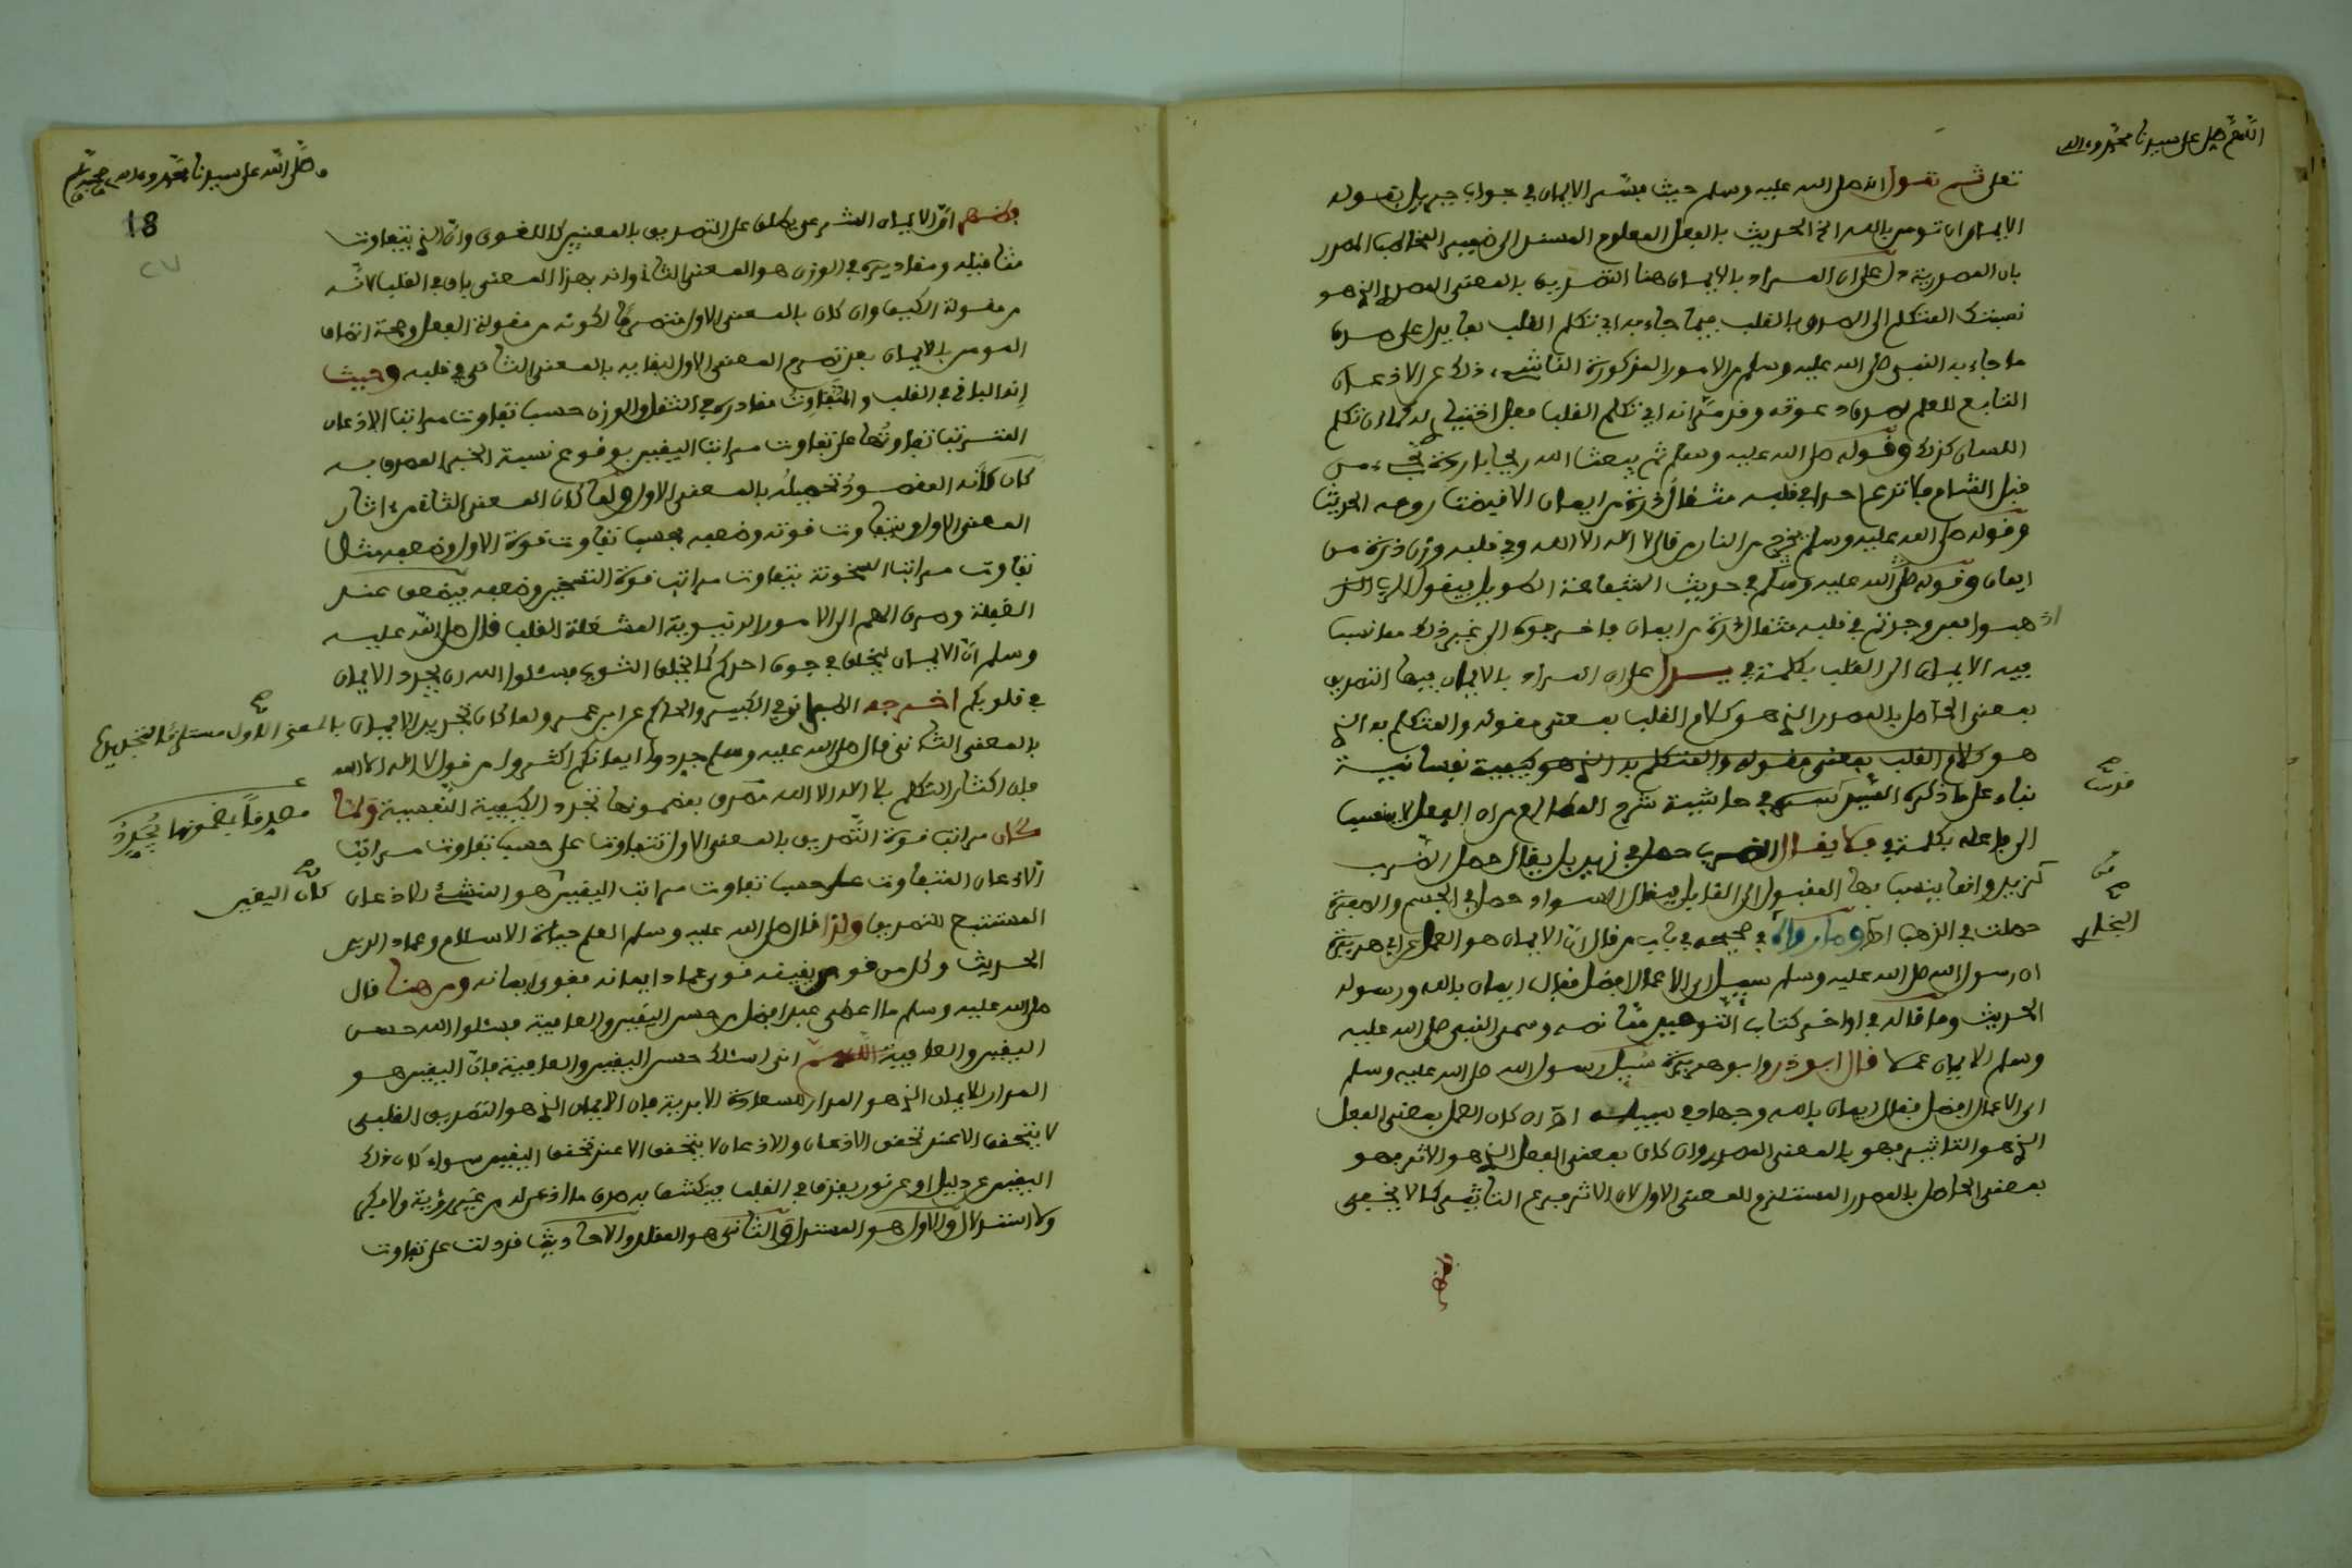 اللهم صل على سيدنا محمد وءاله
تعلى ثم نقول انه صلى الله عليه وسلم حيث فسر الايمان في جواب جبريل بقوله
الايمان ان تومن بالله الخ الحديث بالفعل المعلوم المسند الى ضمير المخاطب المصدر
بان المصدرية دل على ان المراد بالايمان هنا التصديق بالمعنى المصدري الذي هو
نسبتك المتكلم الى الصدق بالقلب فيما جاء به اي تكلم القلب بما يدل على صدق
ما جاء به النبي صلى الله عليه وسلم من الامور المذكورة الناشيء ذلك عن الاذعان
التابع للعلم بصدق دعوته وقد مر انه اي تكلم القلب فعل اختياري له كما ان تكلم
اللسان كذلك وقوله صلى الله عليه وسلم ثم يبعث الله ريحا باردة تجيء من
قبل الشام فلا تدع احدا في قلبه مثقال ذرة من ايمان الا قبضت روحه الحديث
وقوله صلى الله عليه وسلم يخرج من النار من قال لا اله الا الله وفي قلبه وزن ذرة من
ايمان وقوله صلى الله عليه وسلم في حديث الشفاعة الطويل فيقول الرب
اذهبوا فمن وجدتم في قلبه مثقال ذرة من ايمان فاخرجوه الى غير ذلك مما نسب
فيه الايمان الى القلب بكلمة في يدل على ان المراد بالايمان فيها التصديق
بمعنى الحاصل بالمصدر الذي هو كلام القلب بمعنى مقوله والمتكلم به الذي
هو كلام القلب بمعنى مقوله والمتكلم به الذي هو كيفية نفسانية
بناء على ما ذكره السيد قدس سره في حاشية شرح المطالع من ان الفعل لا ينسب
قدست
الى فاعله بكلمة في فلا يقال الضرب حصل في زيد بل يقال حصل الضرب
من زيد وانما ينسب بها المفعول الى القابل فيقال السواد حصل في الجسم والصفرة
حصلت في الذهب اه وما رواه في صحيحه في باب من قال ان الايمان هو العمل عن ابي هريرة
البخاري
ان رسول الله صلى الله عليه وسلم سئل اي الاعمال افضل فقال ايمان بالله ورسوله
الحديث وما قاله في اواخر كتاب التوحيد مما نصه وسمى النبي صلى الله عليه
وسلم الايمان عملا قال ابو ذر وابو هريرة سئل رسول الله صلى الله عليه وسلم
اي الاعمال افضل فقال ايمان بالله وجهاد في سبيله اه ان كان العمل بمعنى الفعل
الذي هو التاثير فهو بالمعنى المصدري وان كان بمعنى الفعل الذي هو الاثر فهو
بمعنى الحاصل بالمصدر المستلزم للمعنى الاول لان الاثر فرع التاثير كما لا يخفى
صلى الله على سيدنا محمد وءاله وصحبه وسلم
18
27
ان الايمان الشرعي يطلق على التصديق بالمعنيين كاللغوي وان الذي يتفاوت
مثاقيله ومقاديره في الوزن هو المعنى الثاني وانه بهذا المعنى باق في القلب لانه
من مقولة الكيف وان كان بالمعنى الاول متصرما لكونه من مقولة الفعل وصحة اتصاف
المومن بالايمان بعد تصرم المعنى الاول لبقائه بالمعنى الثاني في قلبه وحيث
انه الباقي في القلب والمتفاوت مقادره في الثقل والوزن حسب تفاوت مراتب الاذعان
المترتب تفاوتها على تفاوت مراتب اليقين بوقوع نسبة الخبر المصدق به
كان كانه المقصود تحصيله بالمعنى الاول ولما كان المعنى الثاني من اثار
المعنى الاول ويتفاوت قوته وضعفه بحسب تفاوت قوة الاول وضعفه مثل
تفاوت مراتب السخونة بتفاوت مراتب قوة التسخين وضعفه فيضعف عند
الغفلة وصرف الهمم الى الامور الدنيوية المشغلة القلب قال صلى الله عليه
وسلم ان الايمان ليخلق في جوف احدكم كما يخلق الثوب فسئلوا الله ان يجدد الايمان
في قلوبكم اخرجه الطبراني في الكبير والحاكم عن ابن عمر ولما كان تجديد الايمان بالمعنى الاول مستلزما لتجديده
بالمعنى الثاني قال صلى الله عليه وسلم جددوا ايمانكم اكثروا من قول لا اله الا الله
فان اكثار التكلم بلا اله الا الله مصدقا بمضمونها تجدد الكيفية النفسية ولما
مصدقا بمضمونها يجدد
كان مراتب قوة التصديق بالمعنى الاول تتفاوت على حسب تفاوت مراتب
الاذعان المتفاوت على حسب تفاوت مراتب اليقين هو المنشئ للاذعان
كان اليقين
المستتبع للتصديق ولذا قال صلى الله عليه وسلم العلم حياة الاسلام وعماد الدين
الحديث وكل من قوي يقينه قوي عماد ايمانه فقوي ايمانه ومن هنا قال
صلى الله عليه وسلم ما اعطي عبد افضل من حسن اليقين والعافية فسئلوا الله حسن
اليقين والعافية اللهم اني اسئلك حسن اليقين والعافية فان اليقين هو
المدار للايمان الذي هو المدار للسعادة الابدية فان الايمان الذي هو التصديق القلبي
لا يتحقق الا عند تحقق الاذعان والاذعان لا يتحقق الا عند تحقق اليقين سواء كان ذلك
اليقين عن دليل او عن نور يقذف في القلب فينكشف به صدق ما اذعن له من غير روية ولا فكر
ولا استدلال والاول هو المستدل والثاني هو المقلد والاحاديث قد دلت على تفاوت